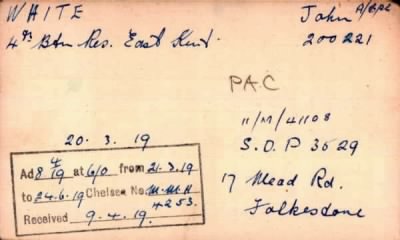 WHITE John A/Cpl
4th Btn Res. East Kent. 200221
PAC
11/M/41108
20. 3. 19
S.O.P 3529
Ad 8/4/19 at 6/0 from 21.3.19
to 24.6.19 Chelsea No M.M.H
4253.
Received 9.4.19.
17 Mead Rd.
Folkestone